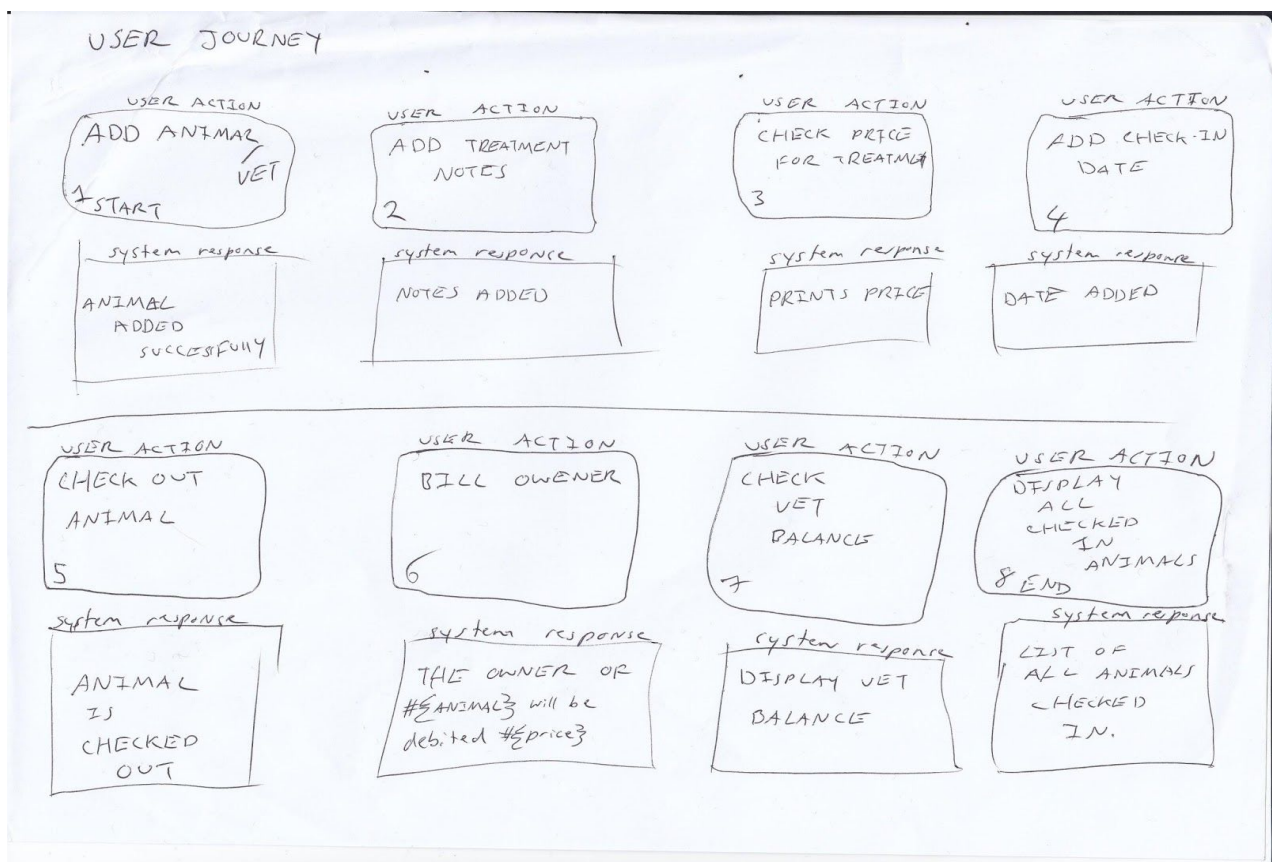 USER JOURNEY
USER ACTION
ADD ANIMAL
/
VET
1 START
system response
ANIMAL
ADDED
SUCCESFULLY
USER ACTION
ADD TREATMENT
NOTES
2
system response
NOTES ADDED
USER ACTION
CHECK PRICE
FOR TREATMET
3
system response
PRINTS PRICE
USER ACTION
ADD CHECK-IN
DATE
4
system response
DATE ADDED
USER ACTION
CHECK OUT
ANIMAL
5
system response
ANIMAL
IS
CHECKED
OUT
USER ACTION
BILL OWENER
6
system response
THE OWNER OF
#{ANIMAL} will be
debited #{price}
USER ACTION
CHECK
VET
BALANCE
7
system response
DISPLAY VET
BALANCE
USER ACTION
DISPLAY
ALL
CHECKED
IN
ANIMALS
8 END
system response
LIST OF
ALL ANIMALS
CHECKED
IN.